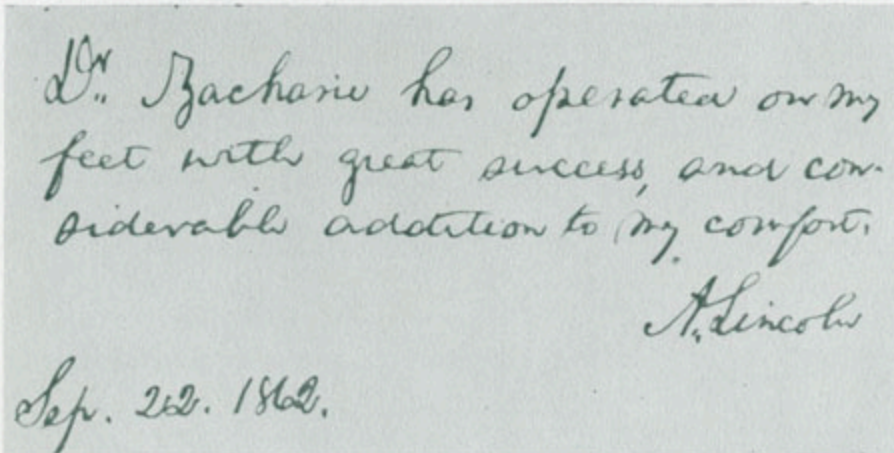 Dr. Zacharie has operated on my
feet with great success, and con-
siderable addition to my comfort.
A. Lincoln
Sep. 22. 1862.